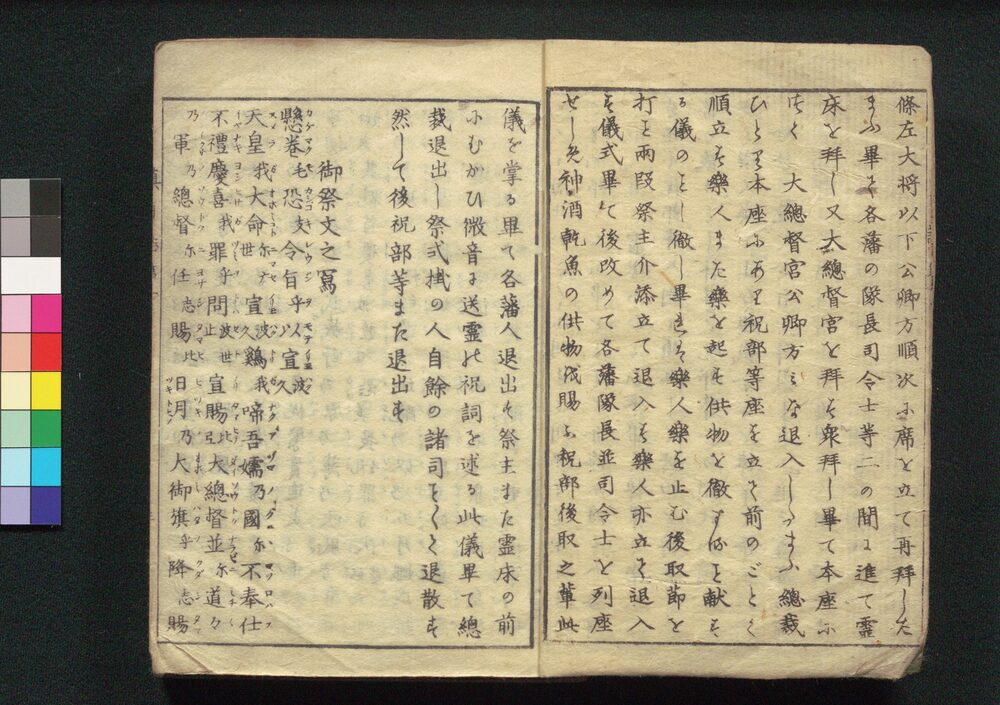 條左大将以下公卿方順次ニ席を立て再拜した
まふ畢て各藩の隊長司令士等二の間に進て靈
床を拜し又大總督宮を拜す衆拜し畢て本座に
つく　大總督宮公卿方ミな退入したまふ總裁
ひとり本座にあり祝部等座を立て前のごとく
順立す樂人また樂を起す供物を徹するを献す
る儀のとし徹し畢れは樂人樂を止む後取節を
打と兩段祭主介添立て退入す樂人亦立て退入
す儀式畢て後改めて各藩隊長並司令士を列座
せしめ神酒乾魚の供物代賜ふ祝部後取之輩此
儀を掌る畢て各藩人退出す祭主また霊床の前
にむかひ微音に送靈の祝詞を述る此儀畢て總
裁退出し祭式掛の人自餘の諸司ことく退散す
然して後祝部等また退出す
御祭文之寫
懸巻毛恐支令旨乎以宣久波
天皇我大命尓世宣波久鶏我啼吾嬬乃國尓不奉仕
不禮慶喜我罪乎問波世止宣賜比弖大總督並尓道々
乃軍乃總督尓任志賜比日月乃大御旗乎降志賜